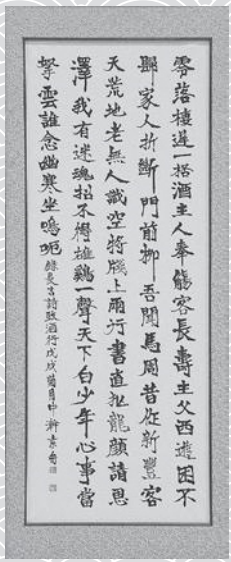 零落棲遲一桮酒主人奉觴客長壽主父西遊困不
歸家人折斷門前柳吾聞馬周昔作新豐客
天荒地老無人識空將牋上兩行書直犯龍顏請恩
澤我有迷魂招不得雄鷄一聲天下白少年心事當
拏雲誰念幽寒坐嗚呃錄長吉詩致酒行戊戌菊月中澣素